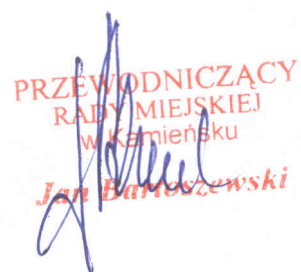 PRZEWODNICZĄCY
RADY MIEJSKIEJ
w Kamieńsku
Jan Bartoszewski